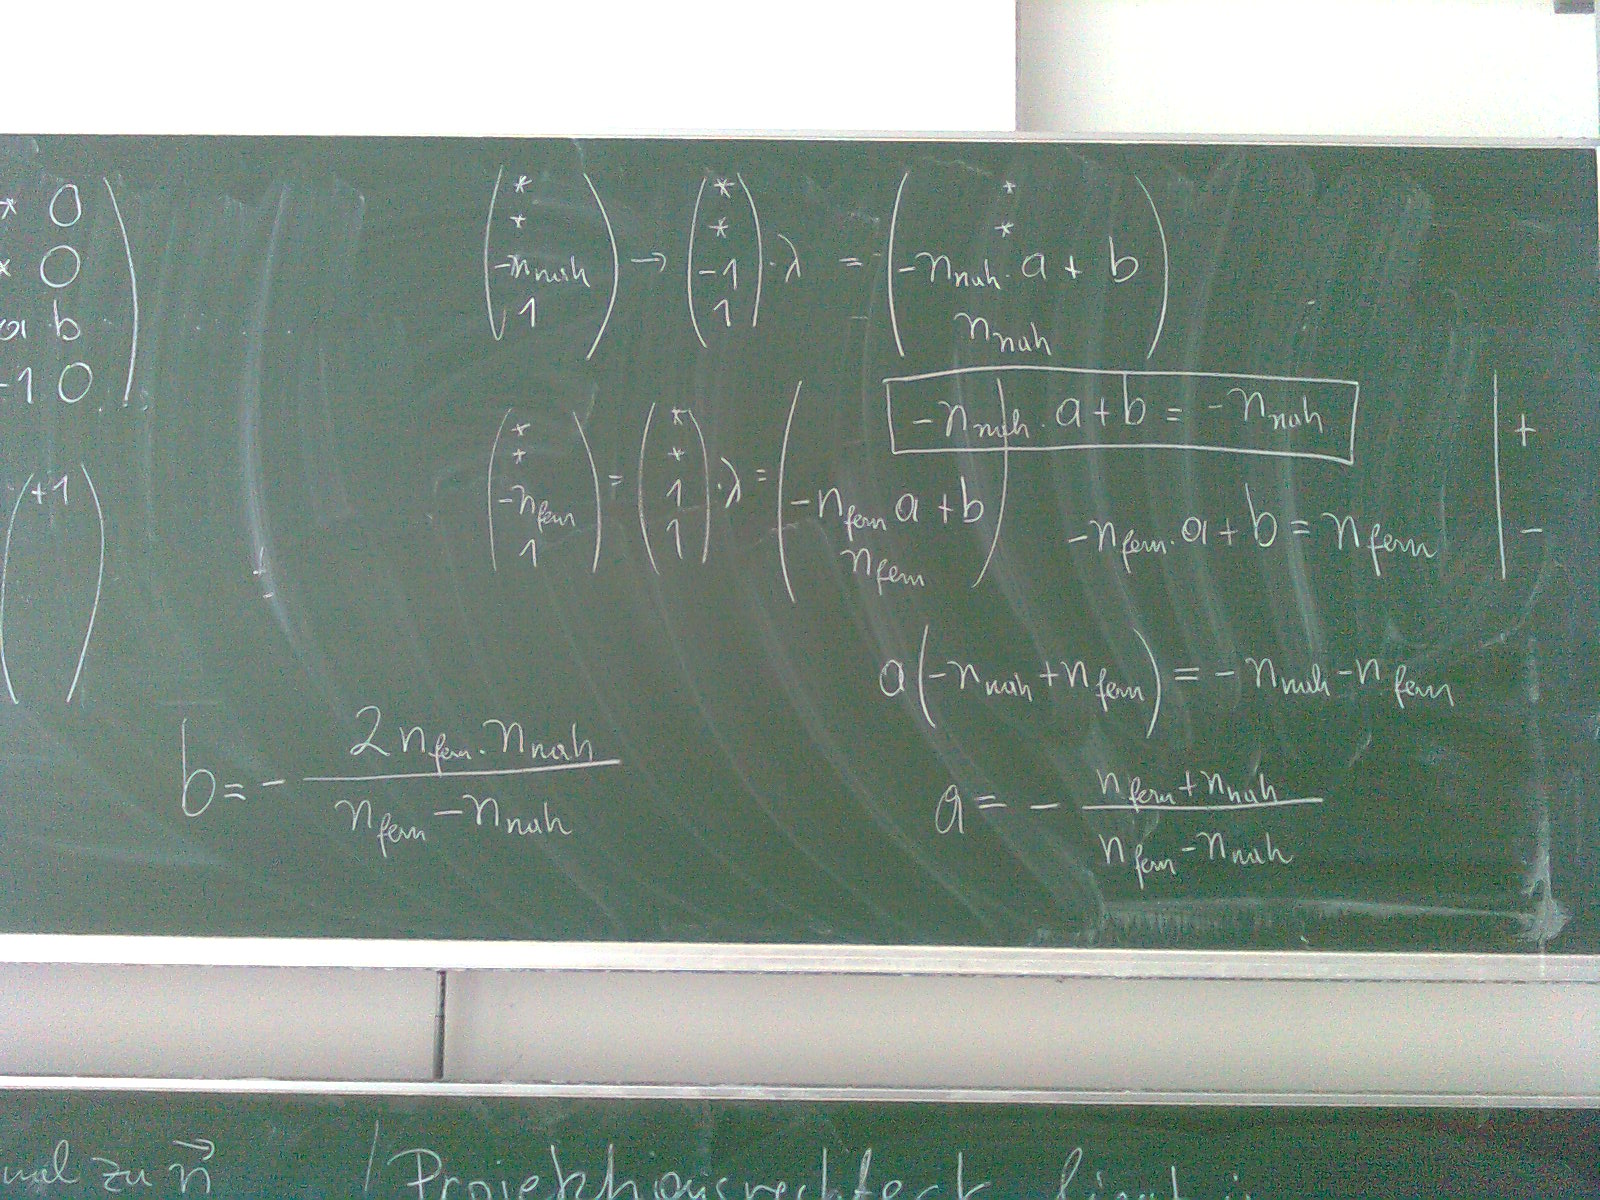 * 0
* 0
a b
-1 0
(* * -n_nah 1) → (* * -1 1) · λ = (* * -n_nah · a + b n_nah)
-n_nah · a + b = -n_nah | +
(* * -n_fern 1) = (* * 1 1) · λ = (-n_fern a + b n_fern)
-n_fern · a + b = n_fern | -
+1
a(-n_nah + n_fern) = -n_nah - n_fern
b = - 2 n_fern · n_nah / n_fern - n_nah
a = - n_fern + n_nah / n_fern - n_nah
zu n⃗